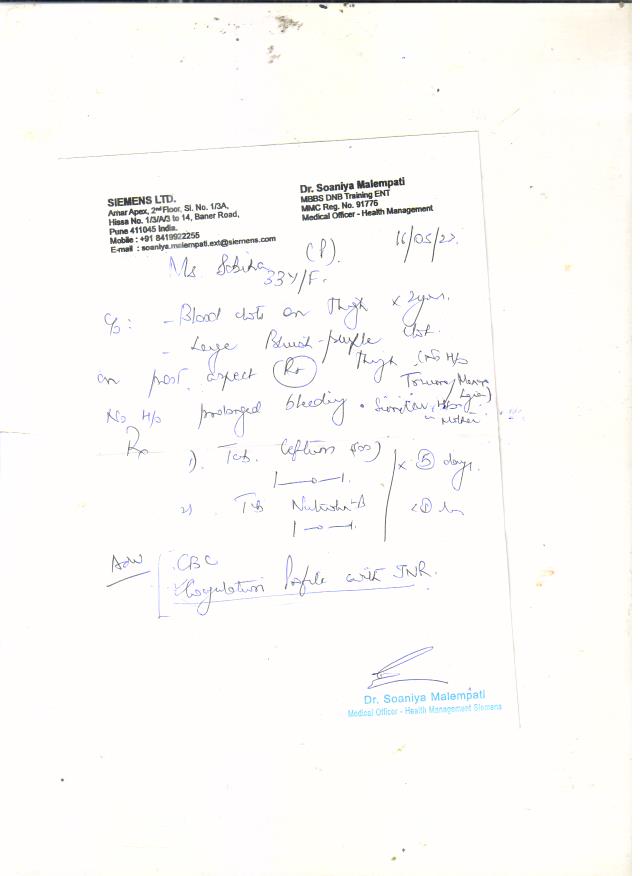 SIEMENS LTD.
Amar Apex, 2nd Floor, Sl. No. 1/3A,
Hissa No. 1/3/A/3 to 14, Baner Road,
Pune 411045 India.
Mobile : +91 8419922255
E-mail : soaniya.malempati.ext@siemens.com
Dr. Soaniya Malempati
MBBS DNB Training ENT
MMC Reg. No. 91776
Medical Officer - Health Management
16/05/22.
Ms Sabiha (P).
33Y/F.
C/o: - Blood clots on thigh x 2 years.
- Large Bluish-purple clot.
on post. aspect (Rt) thigh (No H/o
Trauma/
No H/o prolonged bleeding. Similar
in mother
Rx
1). Tab. Ceftum 500) x 5 days.
1—o—1.
2) Tab
1—o—1.
Adv CBC
Coagulation Profile with INR.
Dr. Soaniya Malempati
Medical Officer - Health Management Siemens